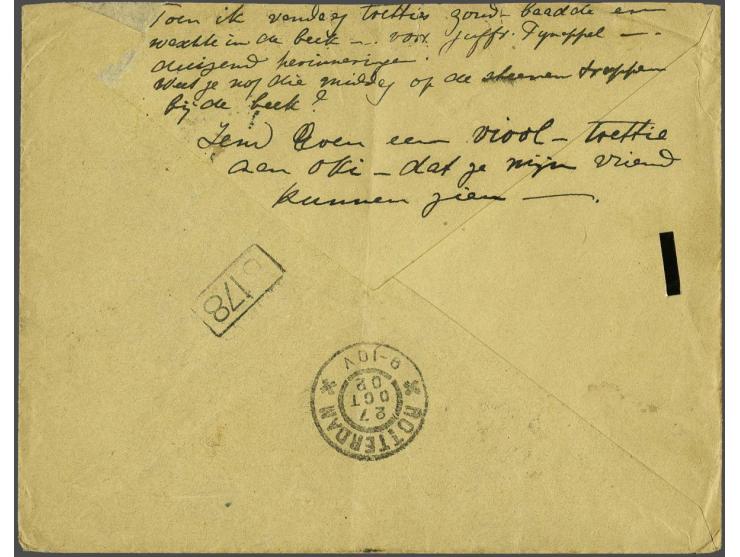 Toen ik vandaag toetties zond baadde en
in de beek – voor Juffr. –
duizend herinneringen.
Weet je nog die middag op de steenen trappen
bij de beek?
een viool – toettie
aan Oki – dat je mijn vriend
kunnen zien —.
178
ROTTERDAM
27
OCT
02
9-10V